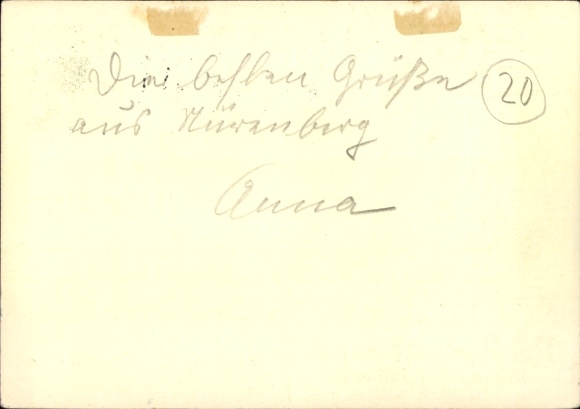 Die besten Grüße
20
aus Nürenberg
Anna